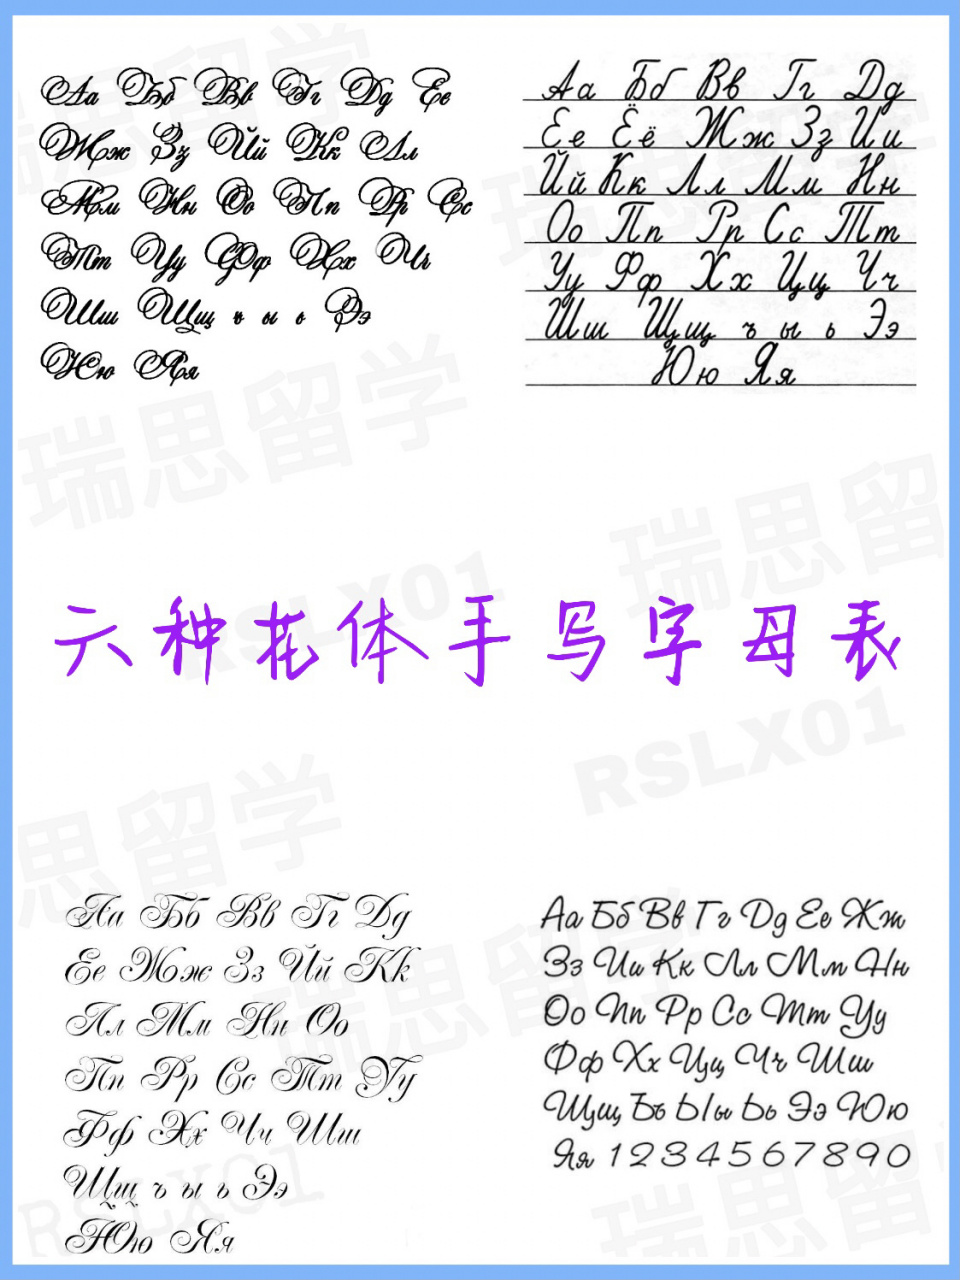 Аа Бб Вв Гг Дд Ее
Жж Зз Йй Кк Лл
Мм Нн Оо Пп Рр Сс
Тт Уу Фф Хх Чч
Шш Щщ ъ ы ь Ээ
Юю Яя
Аа Бб Вв Гг Дд
Ее Ёё Жж Зз Ии
Йй Кк Лл Мм Нн
Оо Пп Рр Сс Тт
Уу Фф Хх Цц Чч
Шш Щщ ъ ы ь Ээ
Юю Яя
六种花体手写字母表
Аа Бб Вв Гг Дд
Ее Жж Зз Йй Кк
Лл Мм Нн Оо
Пп Рр Сс Тт Уу
Фф Хх Чч Шш
Щщ ъ ы ь Ээ
Юю Яя
Аа Бб Вв Гг Дд Ее Жж
Зз Ии Кк Лл Мм Нн
Оо Пп Рр Сс Тт Уу
Фф Хх Цц Чч Шш
Щщ Ъъ Ыы Ьь Ээ Юю
Яя 1 2 3 4 5 6 7 8 9 0
瑞思留学
瑞思留学
瑞思留学
瑞思留
RSLX01
RSLX01
思留学
瑞思留学
RSLX01
瑞思留